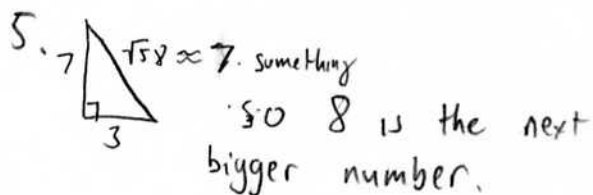 5.
7 √58 ≈ 7. something
3 so 8 is the next
bigger number.